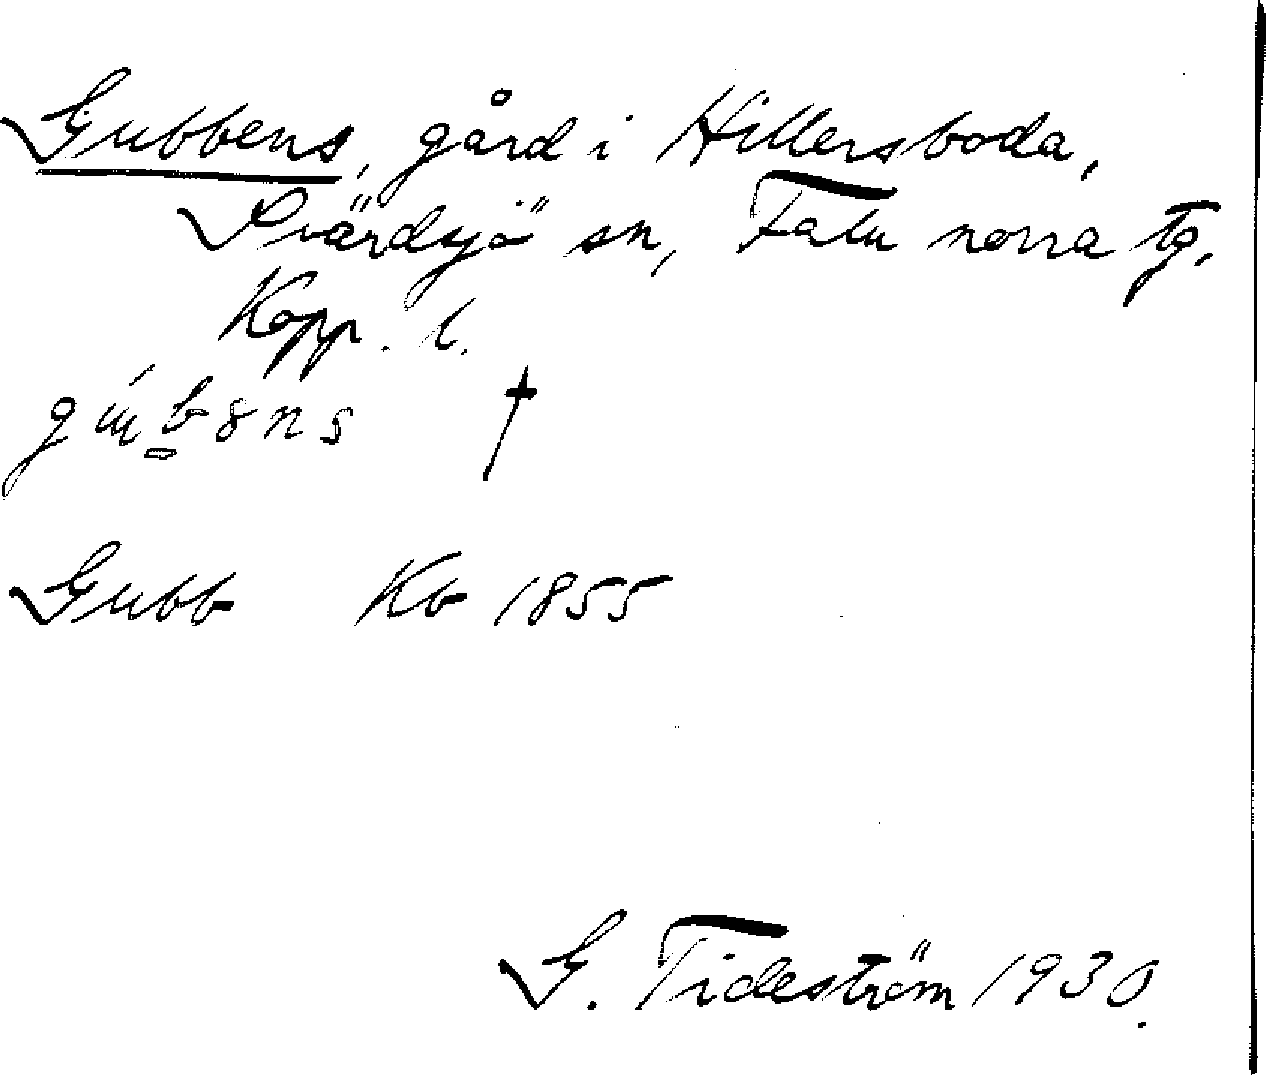 Gubbens, gård i Hillersboda,
Svärdsjö sn, Falu norra tg.
Kopp. l.
gúbəns †
Gubb Kb 1855
G. Tideström 1930.